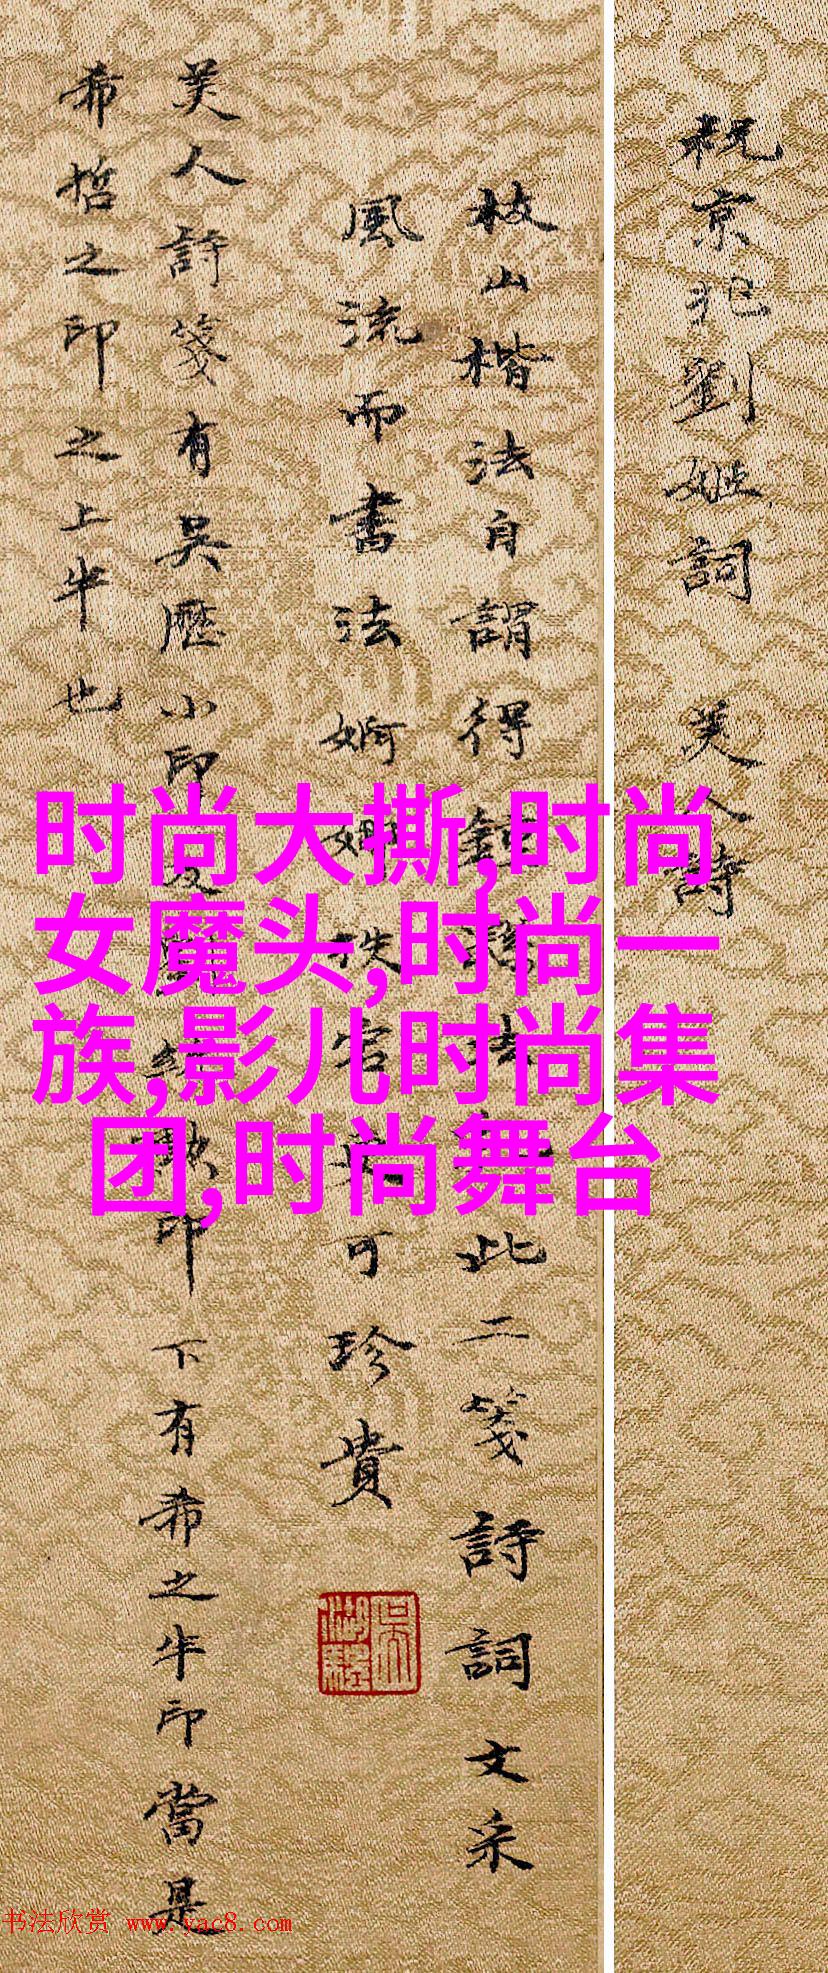 祝京兆劉姬詞 美人詩
枝山楷法自謂得鍾繇法 此二箋詩詞文采
風流而書法婀娜 可珍貴
美人詩箋有吳歷小印及 印下有希之半印當是
希哲之印之上半也
时尚大撕,时尚
女魔头,时尚一
族,影儿时尚集
团,时尚舞台
书法欣赏 www.yac8.com